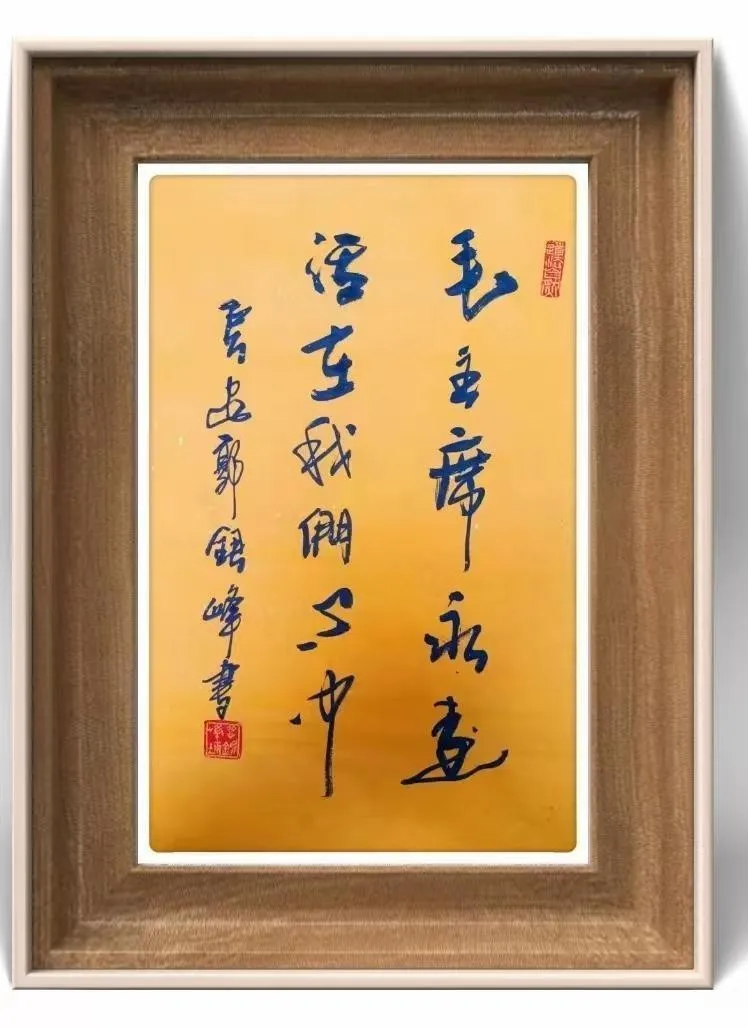 毛主席永遠
活在我們心中
郭銀峰書